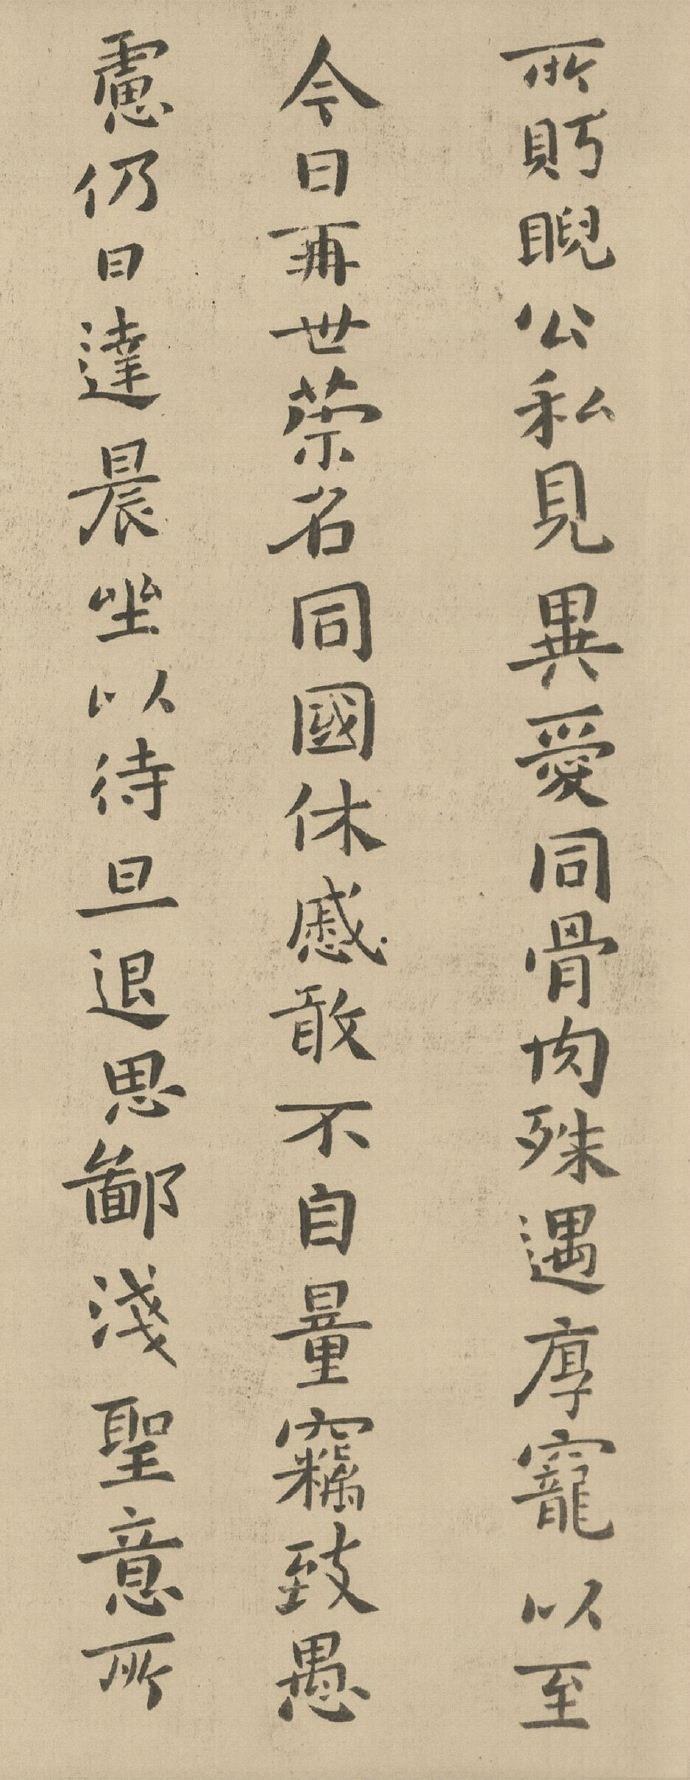 所眄睨公私見異愛同骨肉殊遇厚寵以至
今日再世荣名同國休慼敢不自量竊致愚
慮仍日達晨坐以待旦退思鄙淺聖意所